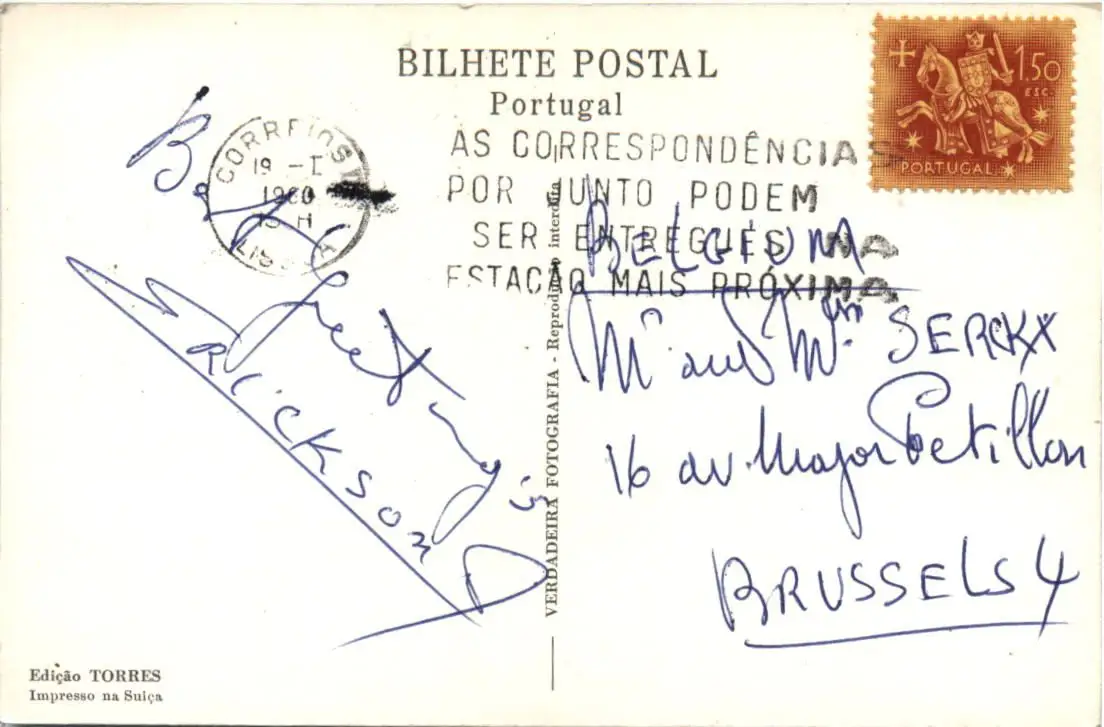 BILHETE POSTAL
Portugal
1.50
ESC.
PORTUGAL
CORREIOS
19 - I
1960
15 H
LISBOA
AS CORRESPONDÊNCIAS
POR JUNTO PODEM
SER ENTREGUES NA
ESTAÇÃO MAIS PRÓXIMA
Best Greetings
ERLICKSON
VERDADEIRA FOTOGRAFIA - Reprodução interdita
BELGIUM
Mr and Mrs SERCKX
16 av. Major Petillon
BRUSSELS 4
Edição TORRES
Impresso na Suiça